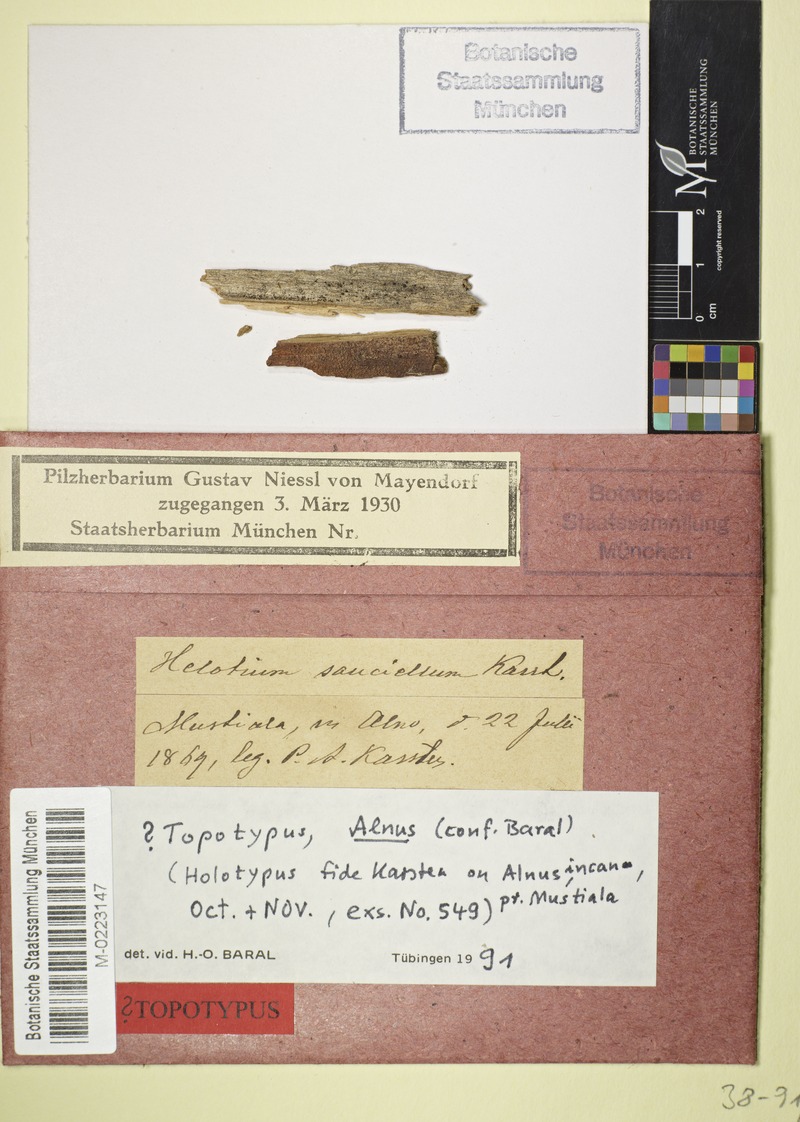 Botanische
Staatssammlung
München
BOTANISCHE
STAATSSAMMLUNG
MÜNCHEN
copyright reserved
0 1 2
cm
Pilzherbarium Gustav Niessl von Mayendorf
zugegangen 3. März 1930
Staatsherbarium München Nr.
Botanische
Staatssammlung
München
Helotium sauciellum Karst.
Mustiala, in Alno, d. 22 Julii
1869, leg. P. A. Karsten.
? Topotypus, Alnus (conf. Baral).
(Holotypus fide Karsten on Alnus incana,
pr. Mustiala
Oct. + Nov., exs. No. 549)
det. vid. H.-O. BARAL Tübingen 1991
?TOPOTYPUS
Botanische Staatssammlung München
M-0223147
38-91